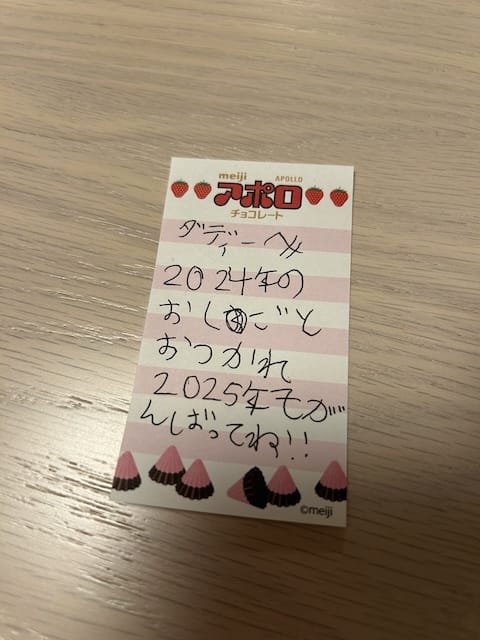 meiji APOLLO
アポロ
チョコレート
ダディーへ
2024年の
おしごと
おつかれ
2025年もが
んばってね!!
©meiji